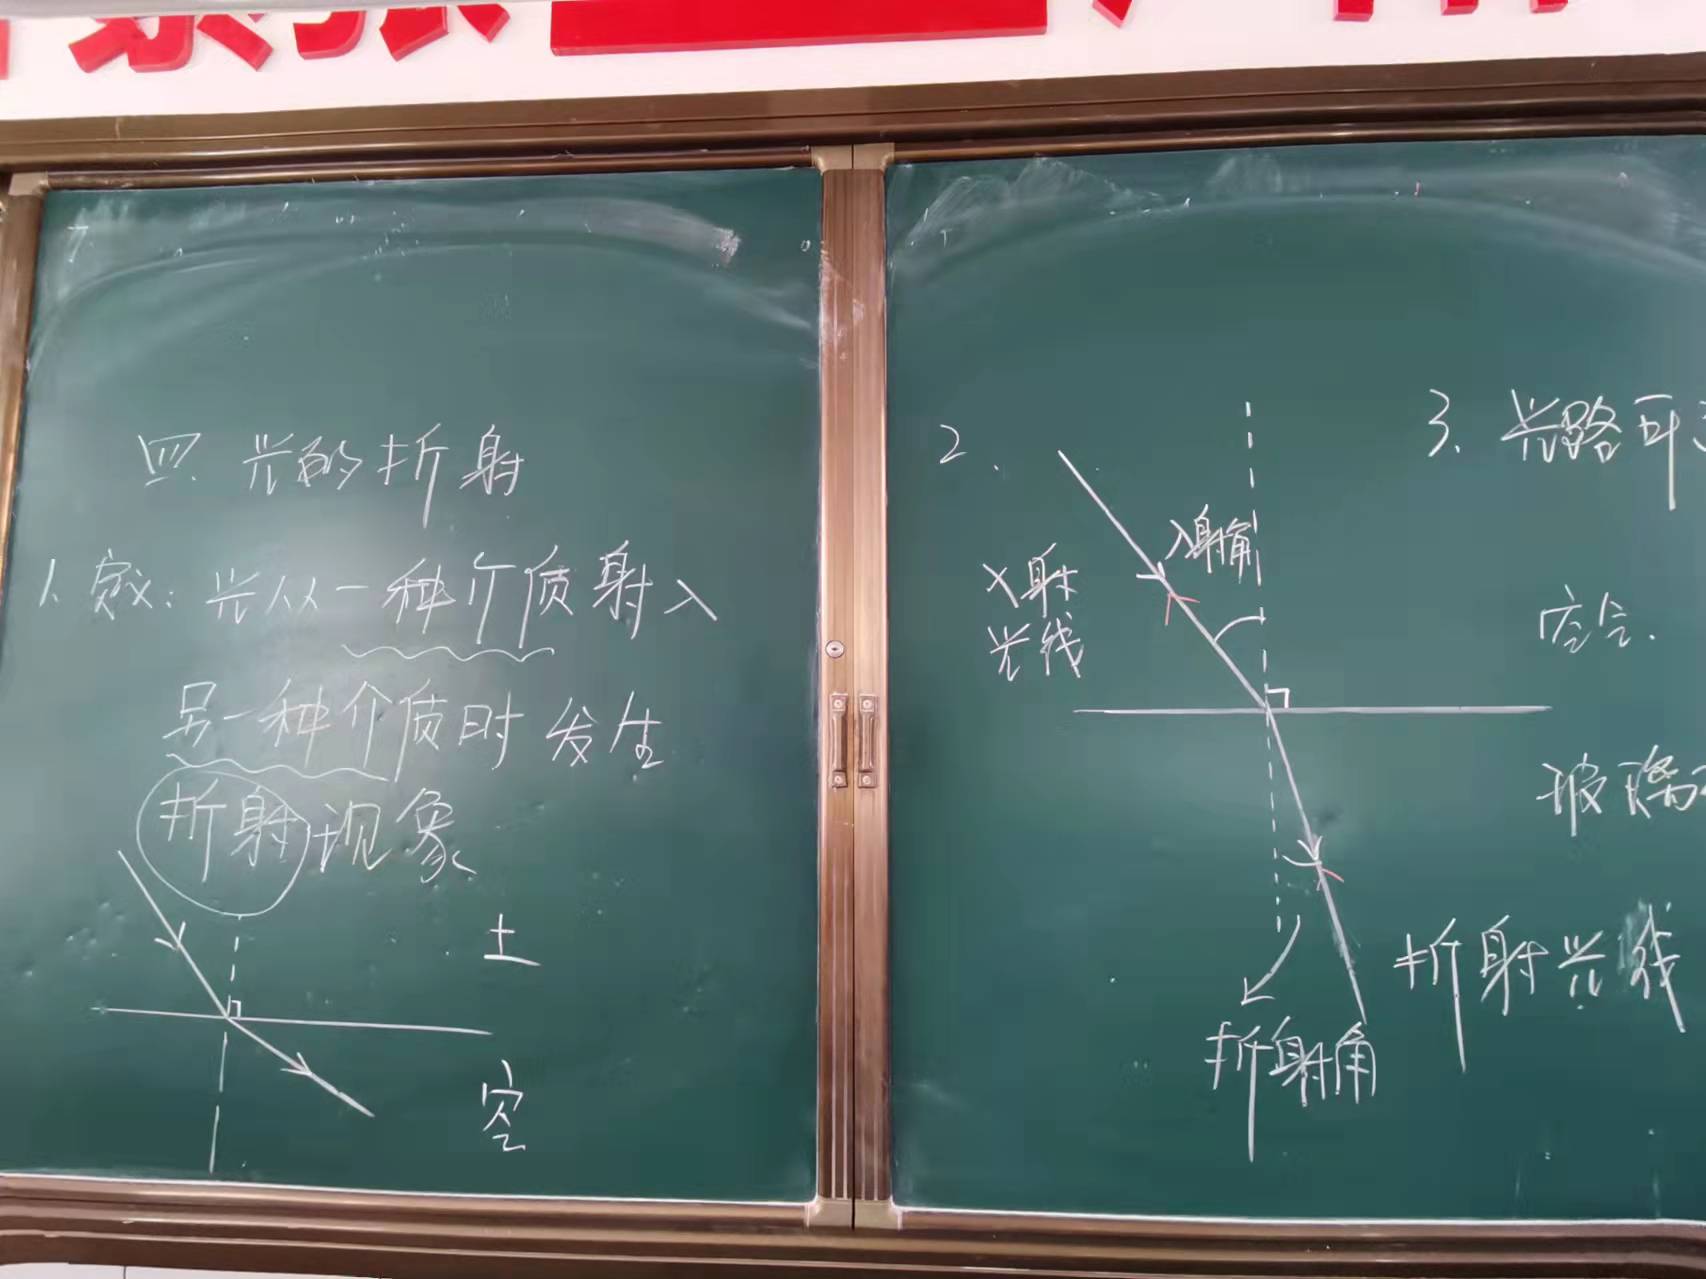 四.光的折射
1.定义:光从一种介质射入
另一种介质时发生
折射现象
土
空
2.
入射角
入射
光线
折射角
3.光路可
空气.
玻璃
折射光线